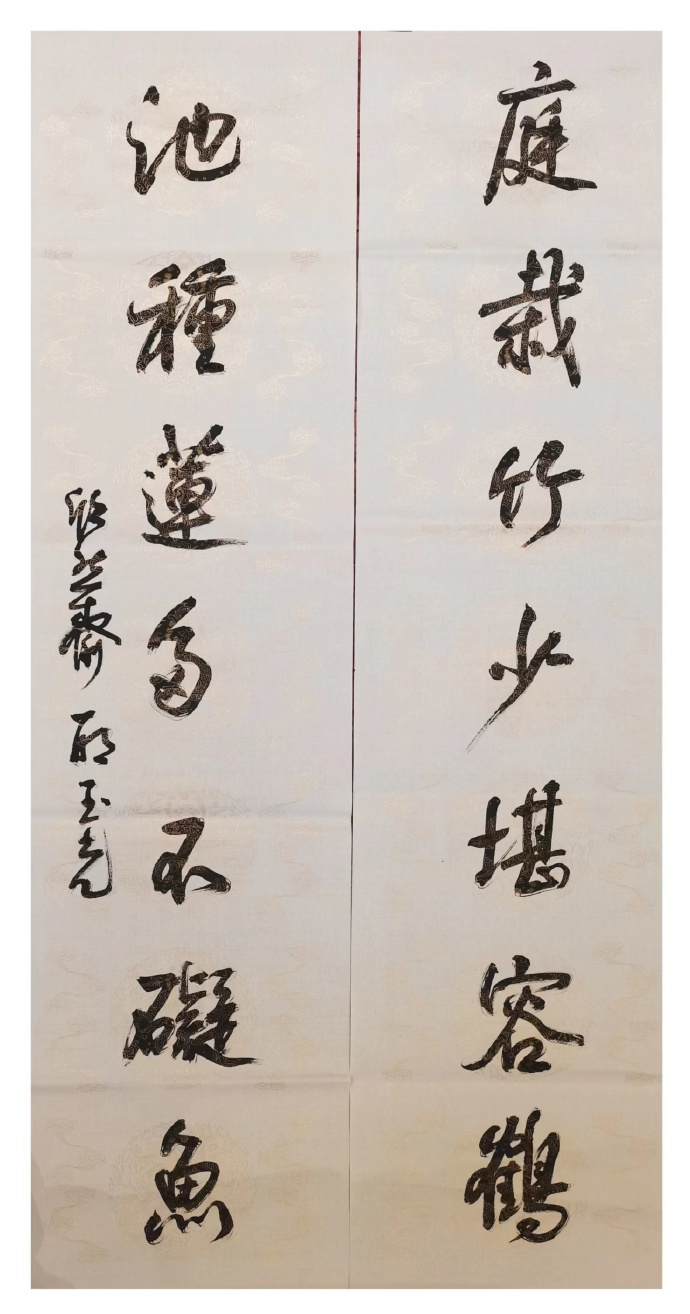 庭栽竹少堪容鶴
池種蓮多不礙魚